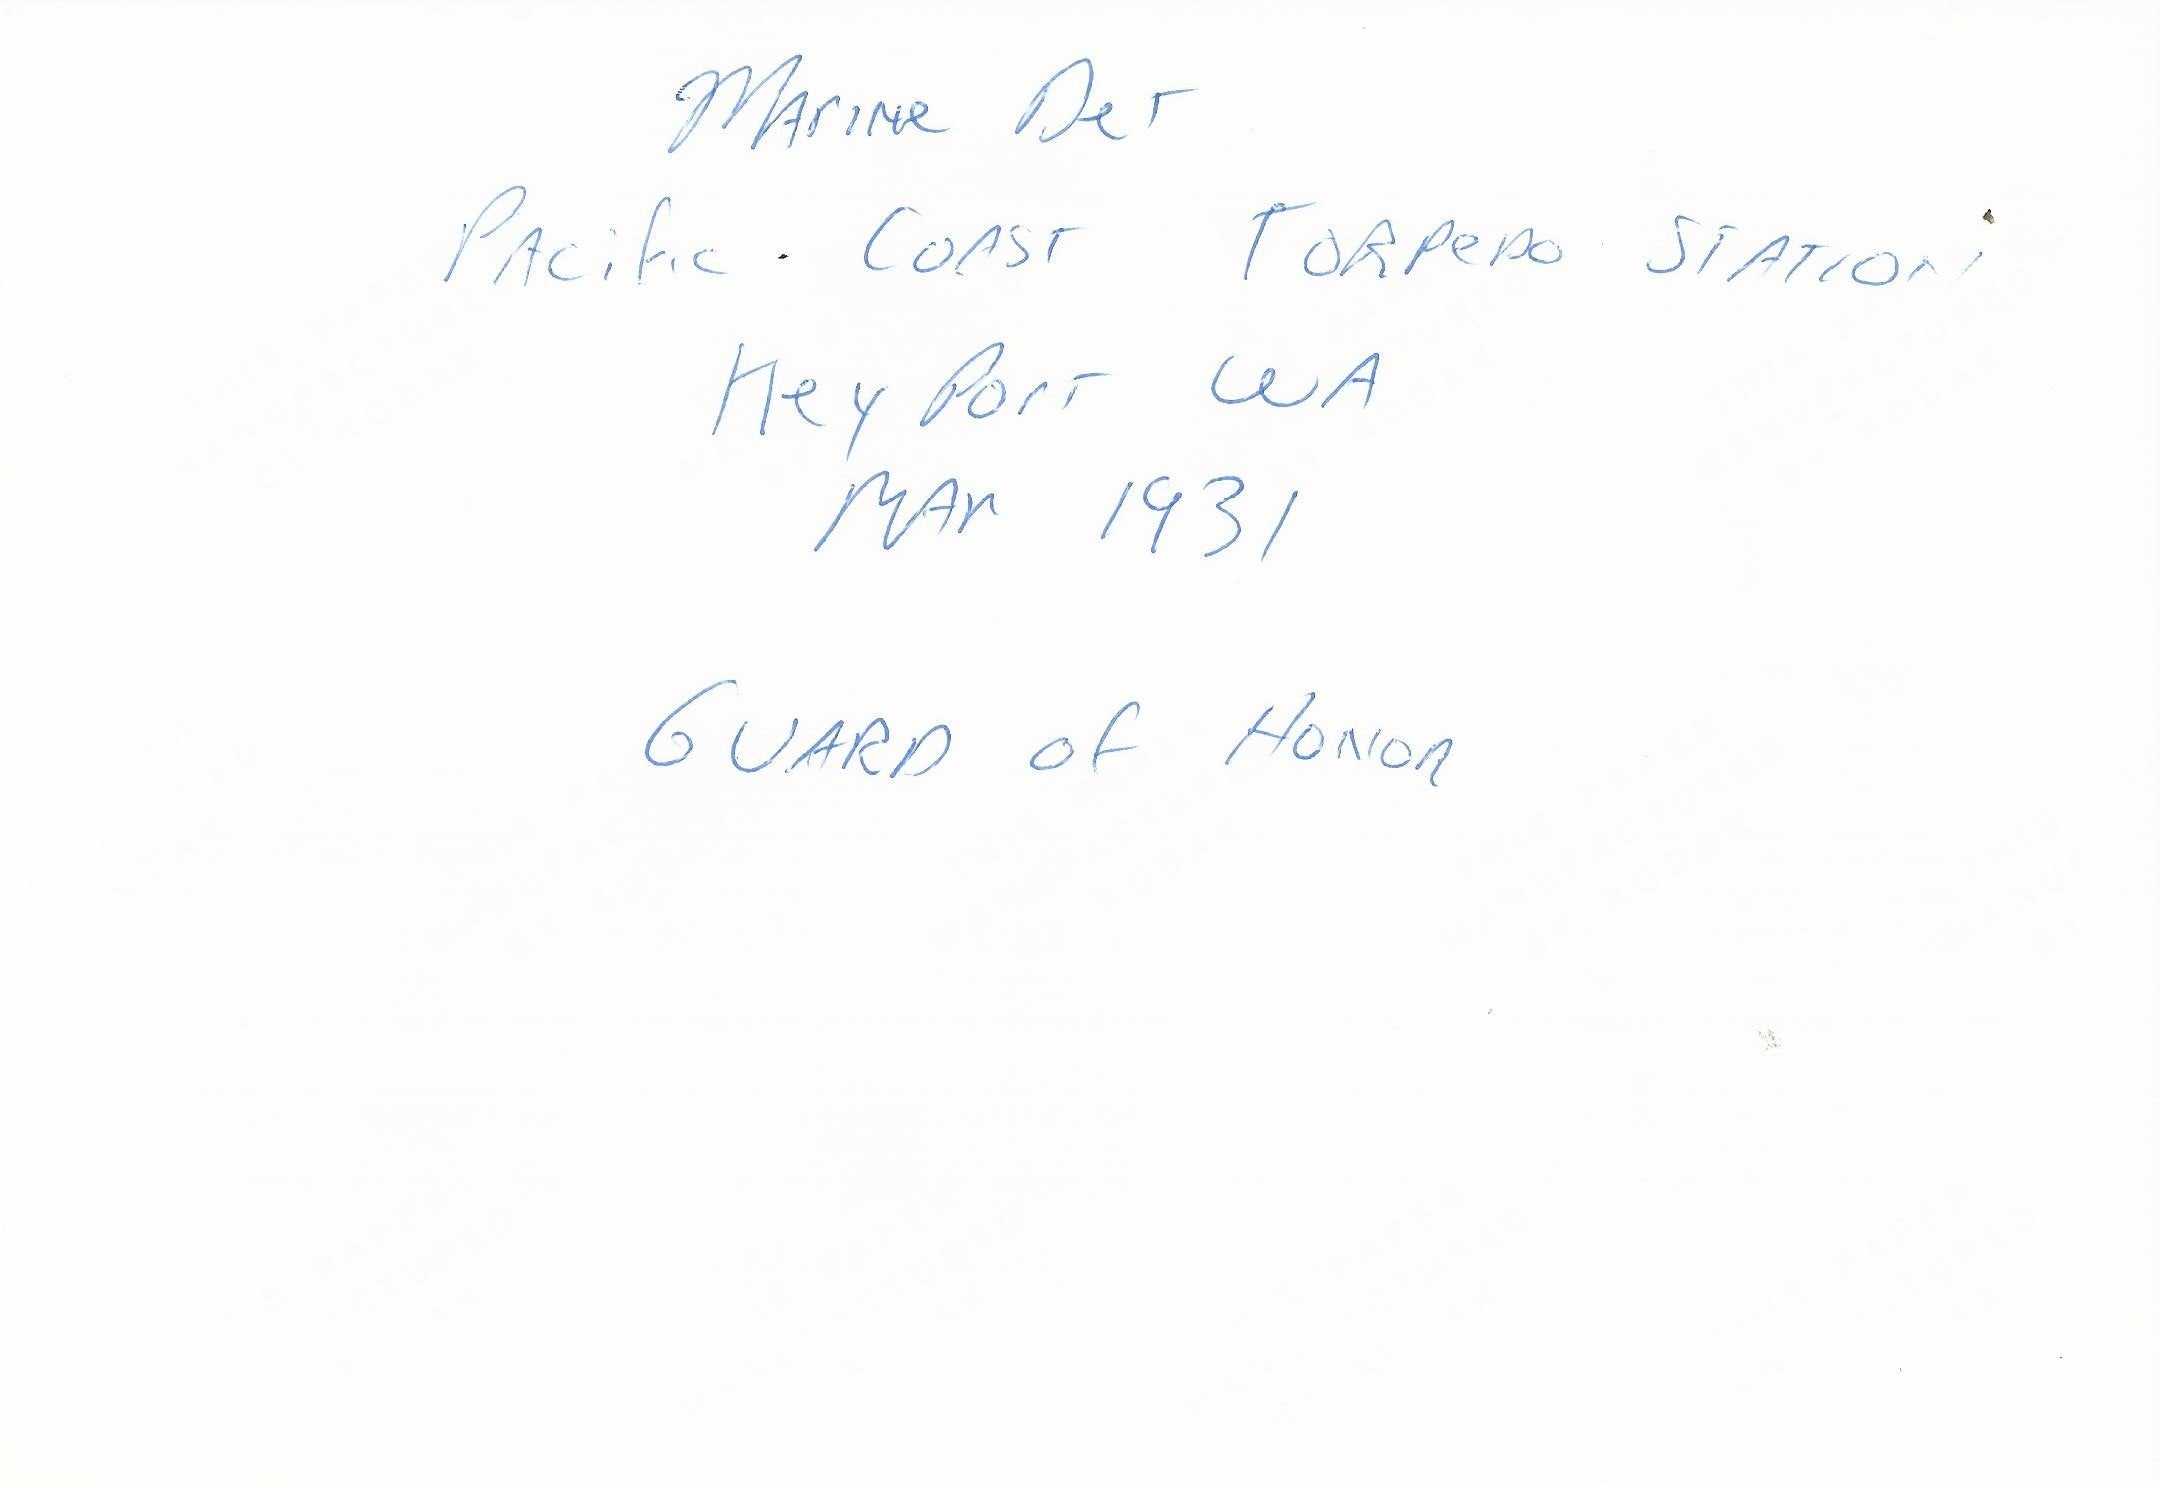 Marine Det
Pacific Coast Torpedo Station
Key Port WA
Mar 1931
Guard of Honor